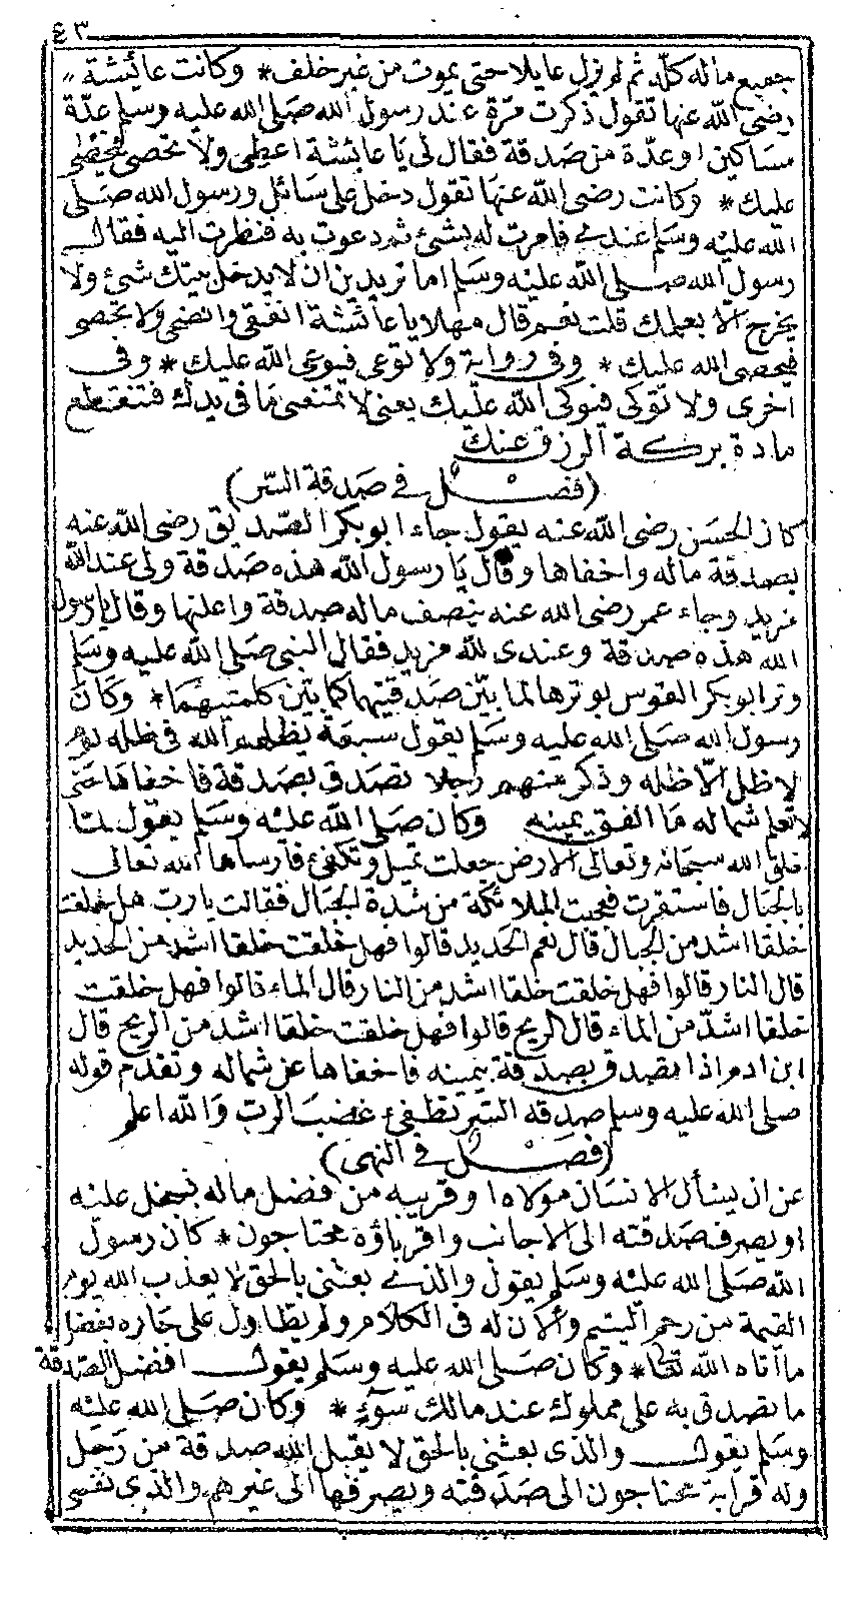 ٤٣
جميع ماله كله ثم لم يزل عايلا حتى يموت من غير خلف * وكانت عائشة
رضى الله عنها تقول ذكرت مرة عند رسول الله صلى الله عليه وسلم عدة
مساكين او عدة من صدقة فقال لى يا عائشة اعطى ولا تحصى فيحصى
عليك * وكانت رضى الله عنها تقول دخل على سائل ورسول الله صلى
الله عليه وسلم عندى فامرت له بشئ ثم دعوت به فنظرت اليه فقال
رسول الله صلى الله عليه وسلم اما تريدين ان لا يدخل بيتك شئ ولا
يخرج الا بعلمك قلت نعم قال مهلا يا عائشة انفقى وانضحى ولا تحصى
فيحصى الله عليك * وفى رواية ولا توعى فيوعى الله عليك * وفى
اخرى ولا توكى فيوكى الله عليك يعنى لا تمنعى ما فى يدك فتنقطع
مادة بركة الرزق عنك
(فصل فى صدقة السر)
كان الحسن رضى الله عنه يقول جاء ابو بكر الصديق رضى الله عنه
بصدقة ماله واخفاها وقال يا رسول الله هذه صدقة ولى عند الله
مزيد وجاء عمر رضى الله عنه بنصف ماله صدقة واعلنها وقال يا رسول
الله هذه صدقة وعندى لله مزيد فقال النبى صلى الله عليه وسلم
وتر ابو بكر القوس بوترها لما بين صدقتيهما كما بين كلمتيهما * وكان
رسول الله صلى الله عليه وسلم يقول سبعة يظلهم الله فى ظله يوم
لا ظل الا ظله وذكر منهم رجلا تصدق بصدقة فاخفاها حتى
لا تعلم شماله ما انفق يمينه وكان صلى الله عليه وسلم يقول لما
خلق الله سبحانه وتعالى الارض جعلت تميل وتكفئ فارساها الله تعالى
بالجبال فاستقرت فعجبت الملائكة من شدة الجبال فقالت يا رب هل خلقت
خلقا اشد من الجبال قال نعم الحديد قالوا فهل خلقت خلقا اشد من الحديد
قال النار قالوا فهل خلقت خلقا اشد من النار قال الماء قالوا فهل خلقت
خلقا اشد من الماء قال الريح قالوا فهل خلقت خلقا اشد من الريح قال
ابن ادم اذا تصدق بصدقة بيمينه فاخفاها عن شماله وتقدم قوله
صلى الله عليه وسلم صدقة السر تطفئ غضب الرب والله اعلم
(فصل فى النهى)
عن ان يسأل الانسان مولاه او قريبه من فضل ماله فيبخل عليه
او يصرف صدقته الى الاجانب واقرباؤه محتاجون * كان رسول
الله صلى الله عليه وسلم يقول والذى بعثنى بالحق لا يعذب الله يوم
القيمة من رحم اليتيم وألان له فى الكلام ولم يتطاول على جاره بفضل
ما آتاه الله تعالى * وكان صلى الله عليه وسلم يقول افضل الصدقة
ما تصدق به على مملوك عند مالك سوء * وكان صلى الله عليه
وسلم يقول والذى بعثنى بالحق لا يقبل الله صدقة من رجل
وله قرابة محتاجون الى صدقته ويصرفها الى غيرهم والذى نفسى